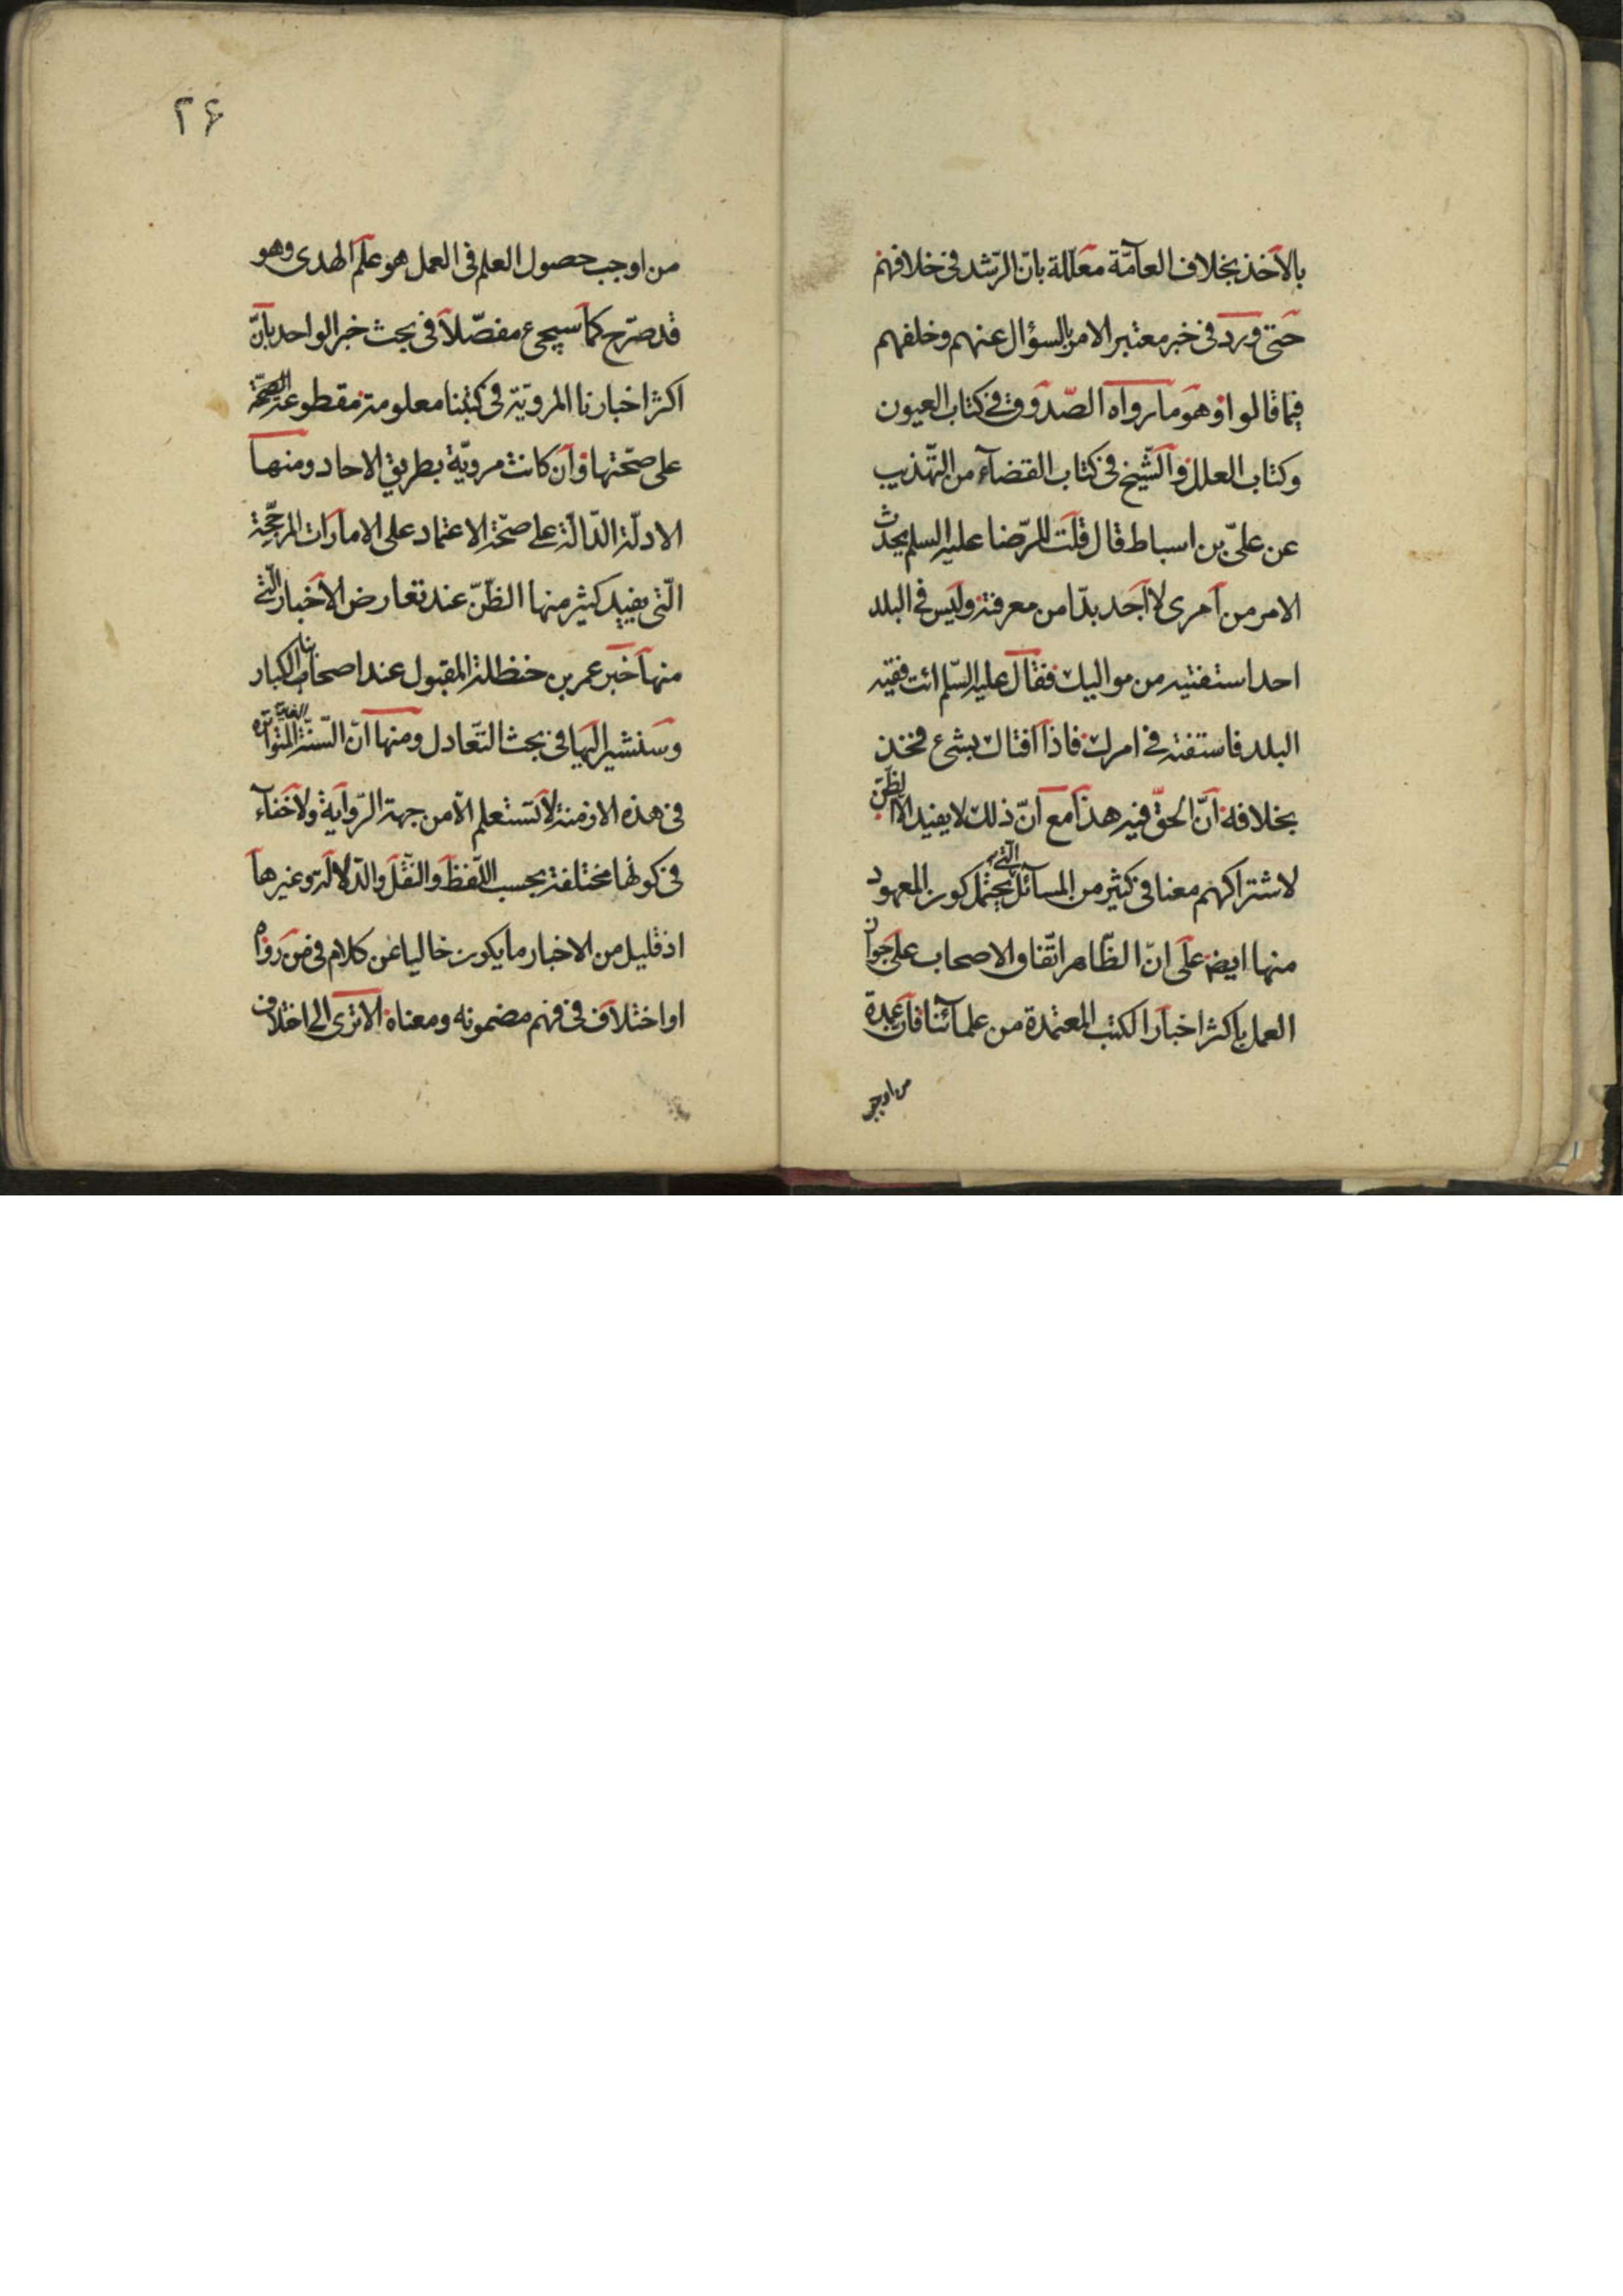 بالاخذ بخلاف العامّة معلّلة بانّ الرّشد فى خلافهم
حتى ورد فى خبر معتبر الامر بالسؤال عنهم وخلفهم
فيما قالوا وهو ما رواه الصّدوق فى كتاب العيون
وكتاب العلل والشّيخ فى كتاب القضآء من التّهذيب
عن علىّ بن اسباط قال قلت للرّضا عليه السلم يحدث
الامر من امرى لا اجد بدّا من معرفته وليس فى البلد
احد استفتيه من مواليك فقال عليه السّلم ائت فقيه
البلد فاستفته فى امرك فاذا افتاك بشىء فخذ
بخلافه انّ الحقّ فيه هذا مع انّ ذلك لا يفيد الا الظنّ
لاشتراكهم معنا فى كثير من المسآئل الّتى يحتمل كون المعهود
منها ايضا على انّ الظّاهر اتّفاق الاصحاب على جواز
العمل باكثر اخبار الكتب المعتمدة من علمآئنا فان عمدة
من اوجب
٢۶
من اوجب حصول العلم فى العمل هو علم الهدى وهو
قد صرّح كما سيجىء مفصّلا فى بحث خبر الواحد بانّ
اكثر اخبارنا المرويّة فى كتبنا معلومة مقطوعة الصّحّة
على صحّتها وان كانت مرويّة بطريق الاحاد ومنها
الادلّة الدّالّة على صحّة الاعتماد على الامارات المرجّحة
الّتى يفيد كثير منها الظّنّ عند تعارض الاخبار الّتى
منها خبر عمر بن حنظلة المقبول عند اصحابنا الكبار
وسنشير اليها فى بحث التعادل ومنها انّ السّنّة المتواترة
فى هذه الازمنة لا تستعلم الّا من جهة الرّواية ولا خفآء
فى كونها مختلفة بحسب اللّفظ والنّقل والدّلالة وغيرها
اذ قليل من الاخبار ما يكون خاليا عن كلام فى من رواه
او اختلاف فى فهم مضمونه ومعناه الا ترى الى اختلاف